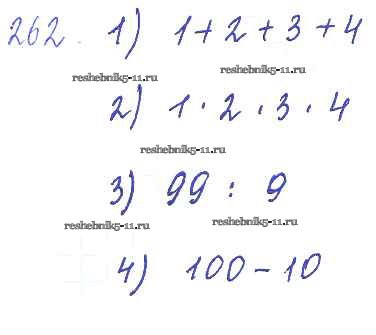 262. 1) 1 + 2 + 3 + 4
reshebnik5-11.ru reshebnik5-11.ru
2) 1 · 2 · 3 · 4
reshebnik5-11.ru
3) 99 : 9
reshebnik5-11.ru reshebnik5-11.ru
4) 100 - 10